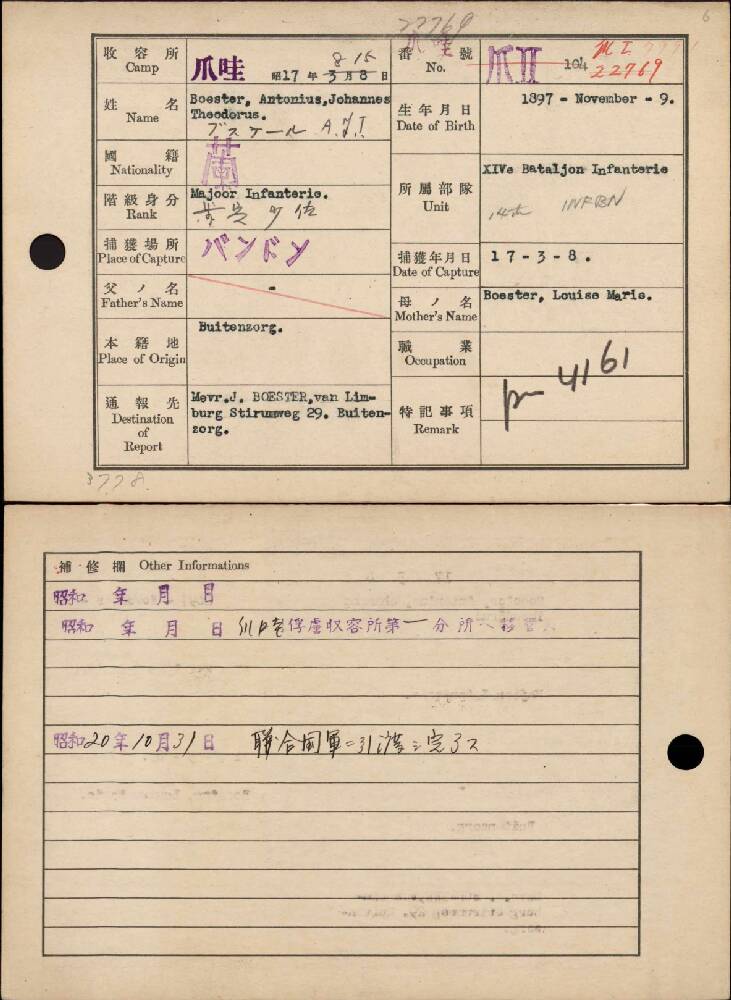 22769
6
爪哇
收容所
Camp
爪哇
昭17年3月8日
8 15
番號
No.
爪 II
104
M I
22769
姓名
Name
Boester, Antonius,Johannes
Theodorus.
ブスケール A.J.T.
生年月日
Date of Birth
1897 - November - 9.
國籍
Nationality
蘭
所屬部隊
Unit
XIVe Bataljon Infanterie
14th INF BN
階級身分
Rank
Majoor Infanterie.
少佐
捕獲場所
Place of Capture
バンドン
捕獲年月日
Date of Capture
17-3-8.
父ノ名
Father's Name
-
母ノ名
Mother's Name
Boester, Louise Marie.
本籍地
Place of Origin
Buitenzorg.
職業
Occupation
通報先
Destination
of
Report
Mevr.J. BOESTER,van Lim-
burg Stirumweg 29. Buiten-
zorg.
特記事項
Remark
4161
3778.
補修欄 Other Informations
昭和 年 月 日
昭和 年 月 日 爪哇俘虜収容所第一分所ヘ移管
昭和20年10月31日 聯合國軍ニ引渡シ完了ス